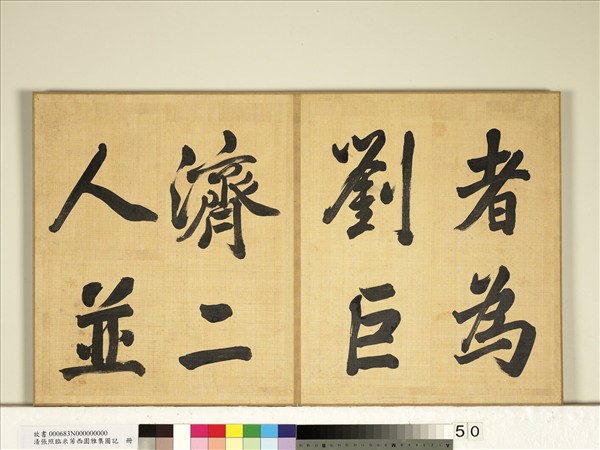 者為
劉巨
濟二
人並
故書 000683N000000000
清張照臨米芾西園雅集圖記 冊
50